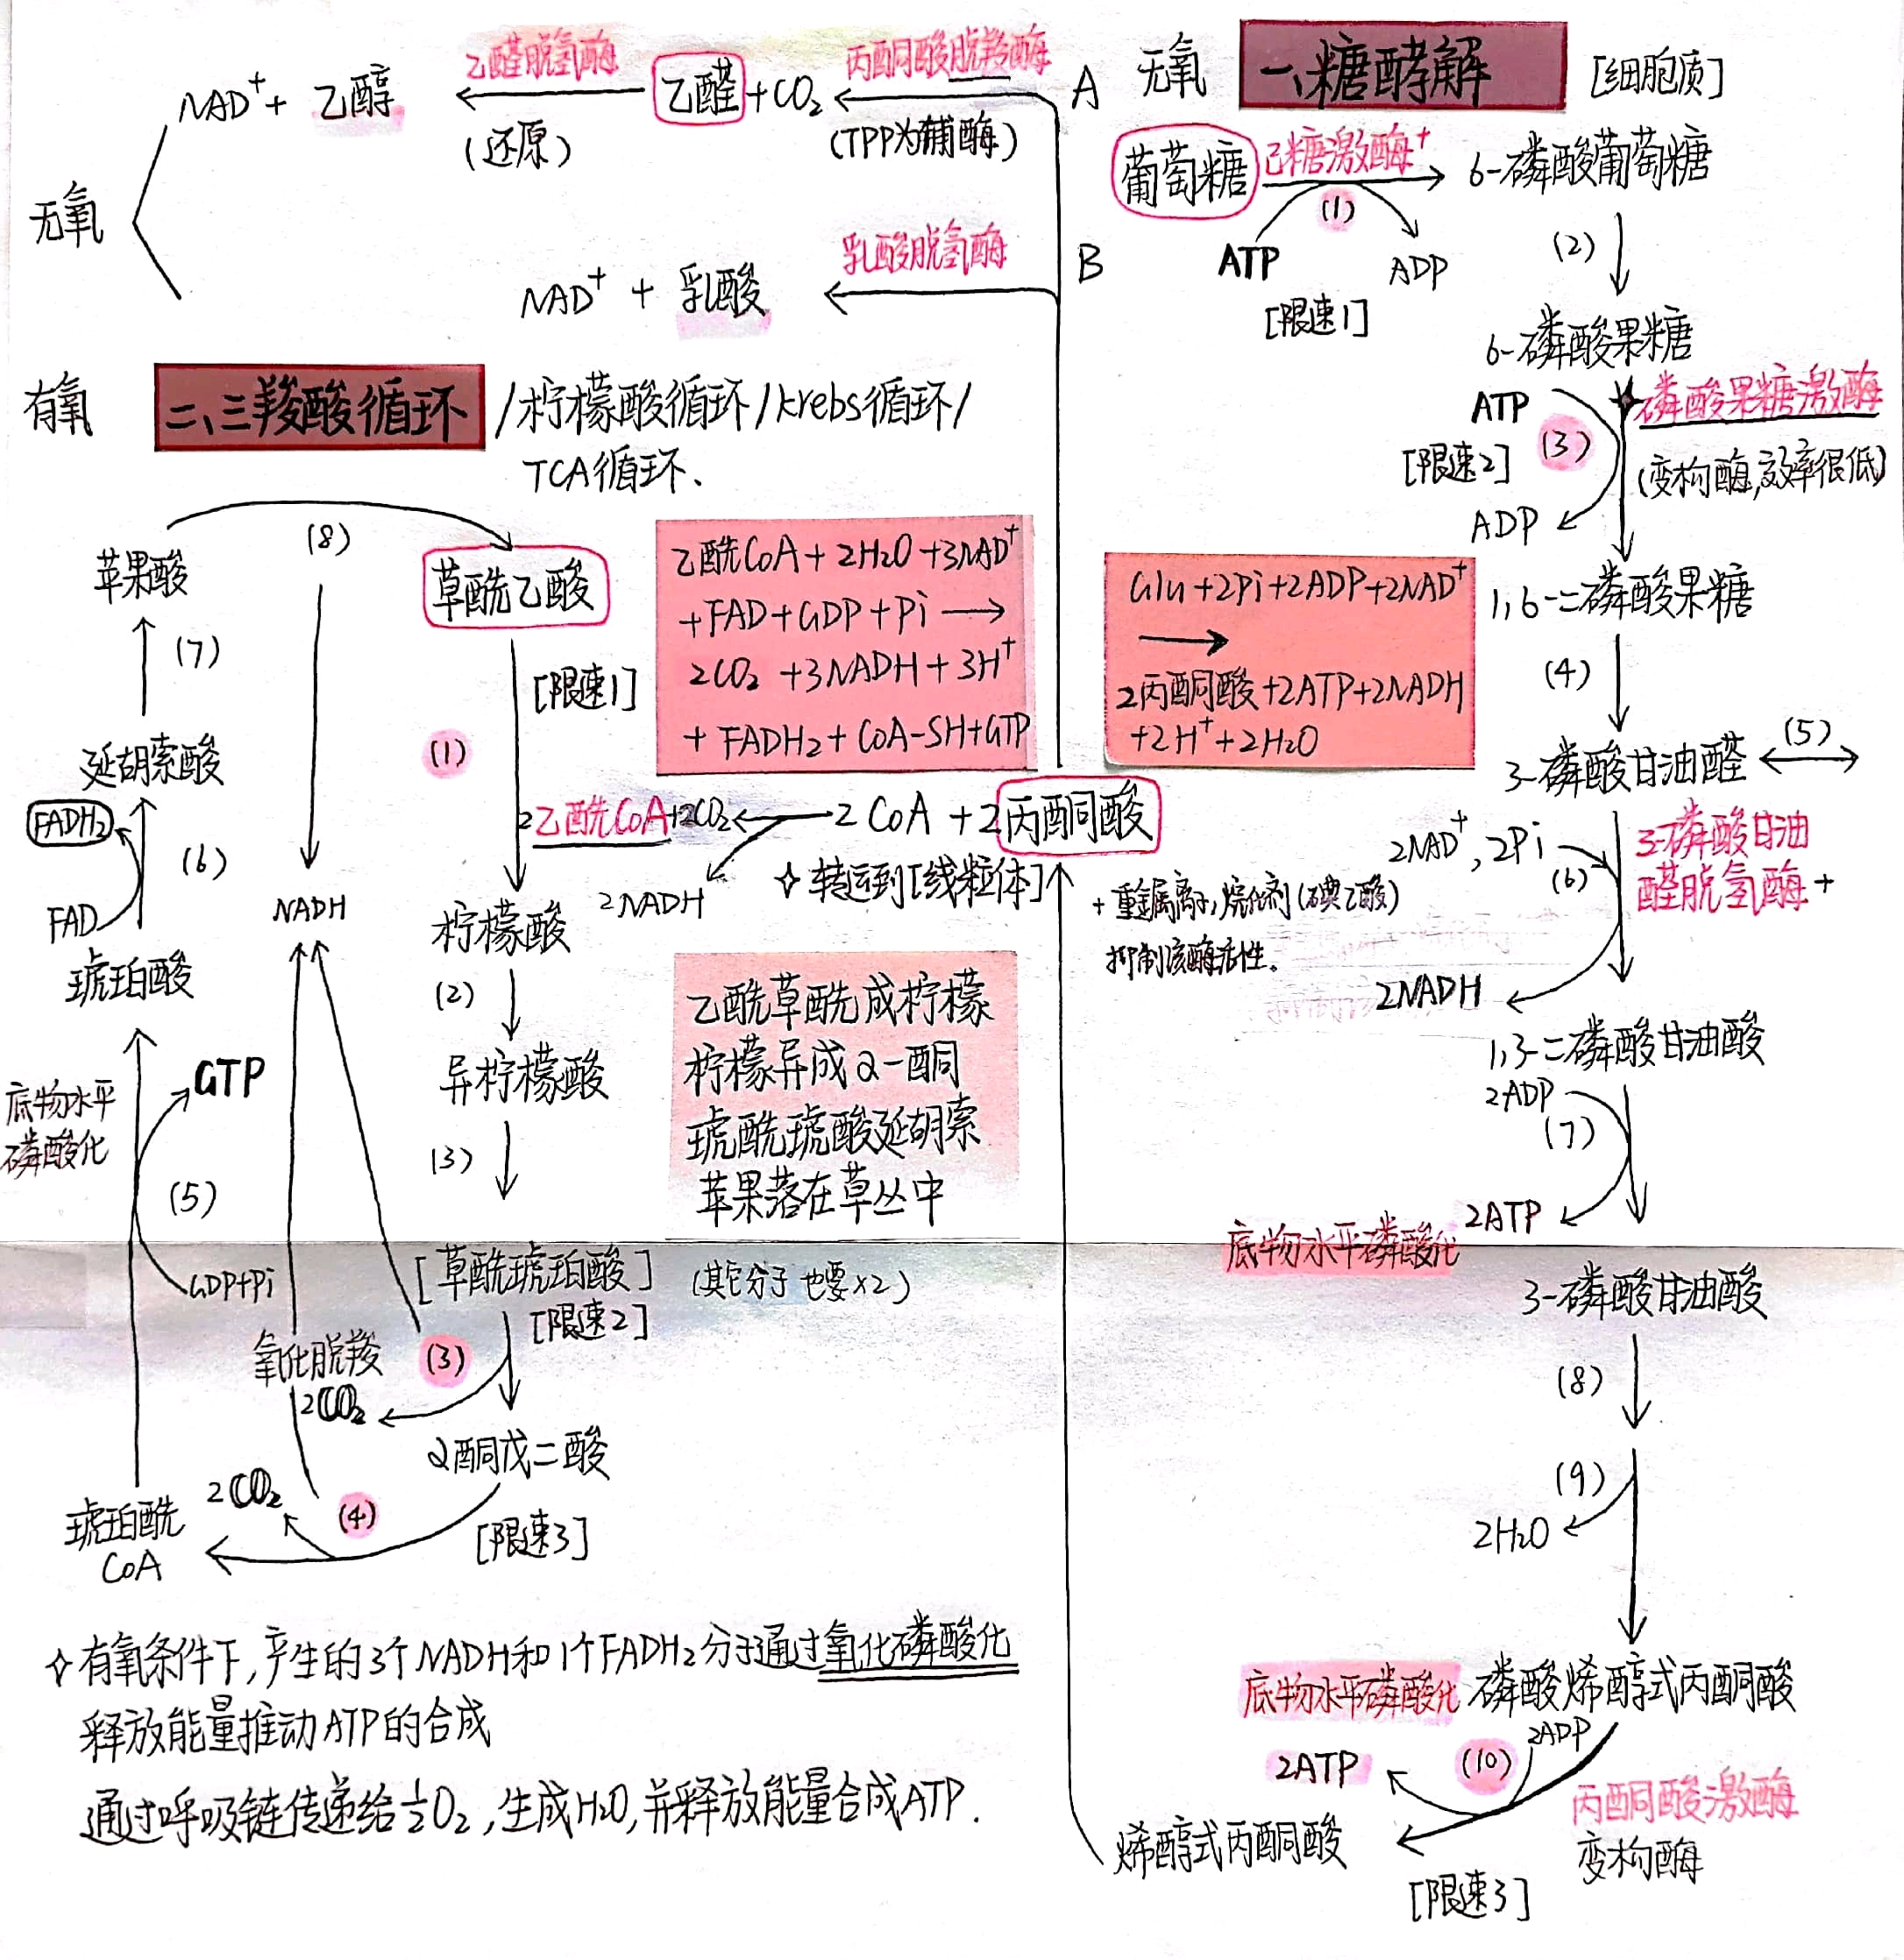 无氧
一、糖酵解
[细胞质]
葡萄糖
己糖激酶+
(1)
ATP
ADP
[限速1]
6-磷酸葡萄糖
(2)
6-磷酸果糖
ATP
[限速2]
(3)
磷酸果糖激酶
(变构酶,效率很低)
ADP
1,6-二磷酸果糖
(4)
3-磷酸甘油醛
(5)
Glu+2Pi+2ADP+2NAD⁺
→
2丙酮酸+2ATP+2NADH
+2H⁺+2H₂O
2NAD⁺,2Pi
(6)
3-磷酸甘油
醛脱氢酶+
+重金属离子,烷化剂(碘乙酸)
抑制该酶活性.
2NADH
1,3-二磷酸甘油酸
2ADP
(7)
2ATP
底物水平磷酸化
3-磷酸甘油酸
(8)
(9)
2H₂O
磷酸烯醇式丙酮酸
底物水平磷酸化
2ADP
2ATP
(10)
丙酮酸激酶
变构酶
烯醇式丙酮酸
[限速3]
A
丙酮酸脱羧酶
(TPP为辅酶)
乙醛+CO₂
乙醛脱氢酶
(还原)
NAD⁺+乙醇
无氧
B
乳酸脱氢酶
NAD⁺+乳酸
有氧
二、三羧酸循环/柠檬酸循环/krebs循环/
TCA循环.
2乙酰CoA+2CO₂←2CoA+2丙酮酸
2NADH
✧转运到[线粒体]
乙酰CoA+2H₂O+3NAD⁺
+FAD+GDP+Pi→
2CO₂+3NADH+3H⁺
+FADH₂+CoA-SH+GTP
草酰乙酸
[限速1]
(1)
柠檬酸
(2)
异柠檬酸
(3)
[草酰琥珀酸]
(其它分子也要×2)
[限速2]
(3)
氧化脱羧
2CO₂
α酮戊二酸
[限速3]
(4)
2CO₂
琥珀酰
CoA
GDP+Pi
(5)
GTP
底物水平
磷酸化
琥珀酸
FAD
(6)
FADH₂
延胡索酸
(7)
苹果酸
(8)
NADH
乙酰草酰成柠檬
柠檬异成α-酮
琥酰琥酸延胡索
苹果落在草丛中
✧有氧条件下,产生的3个NADH和1个FADH₂分子通过氧化磷酸化
释放能量推动ATP的合成
通过呼吸链传递给½O₂,生成H₂O,并释放能量合成ATP.